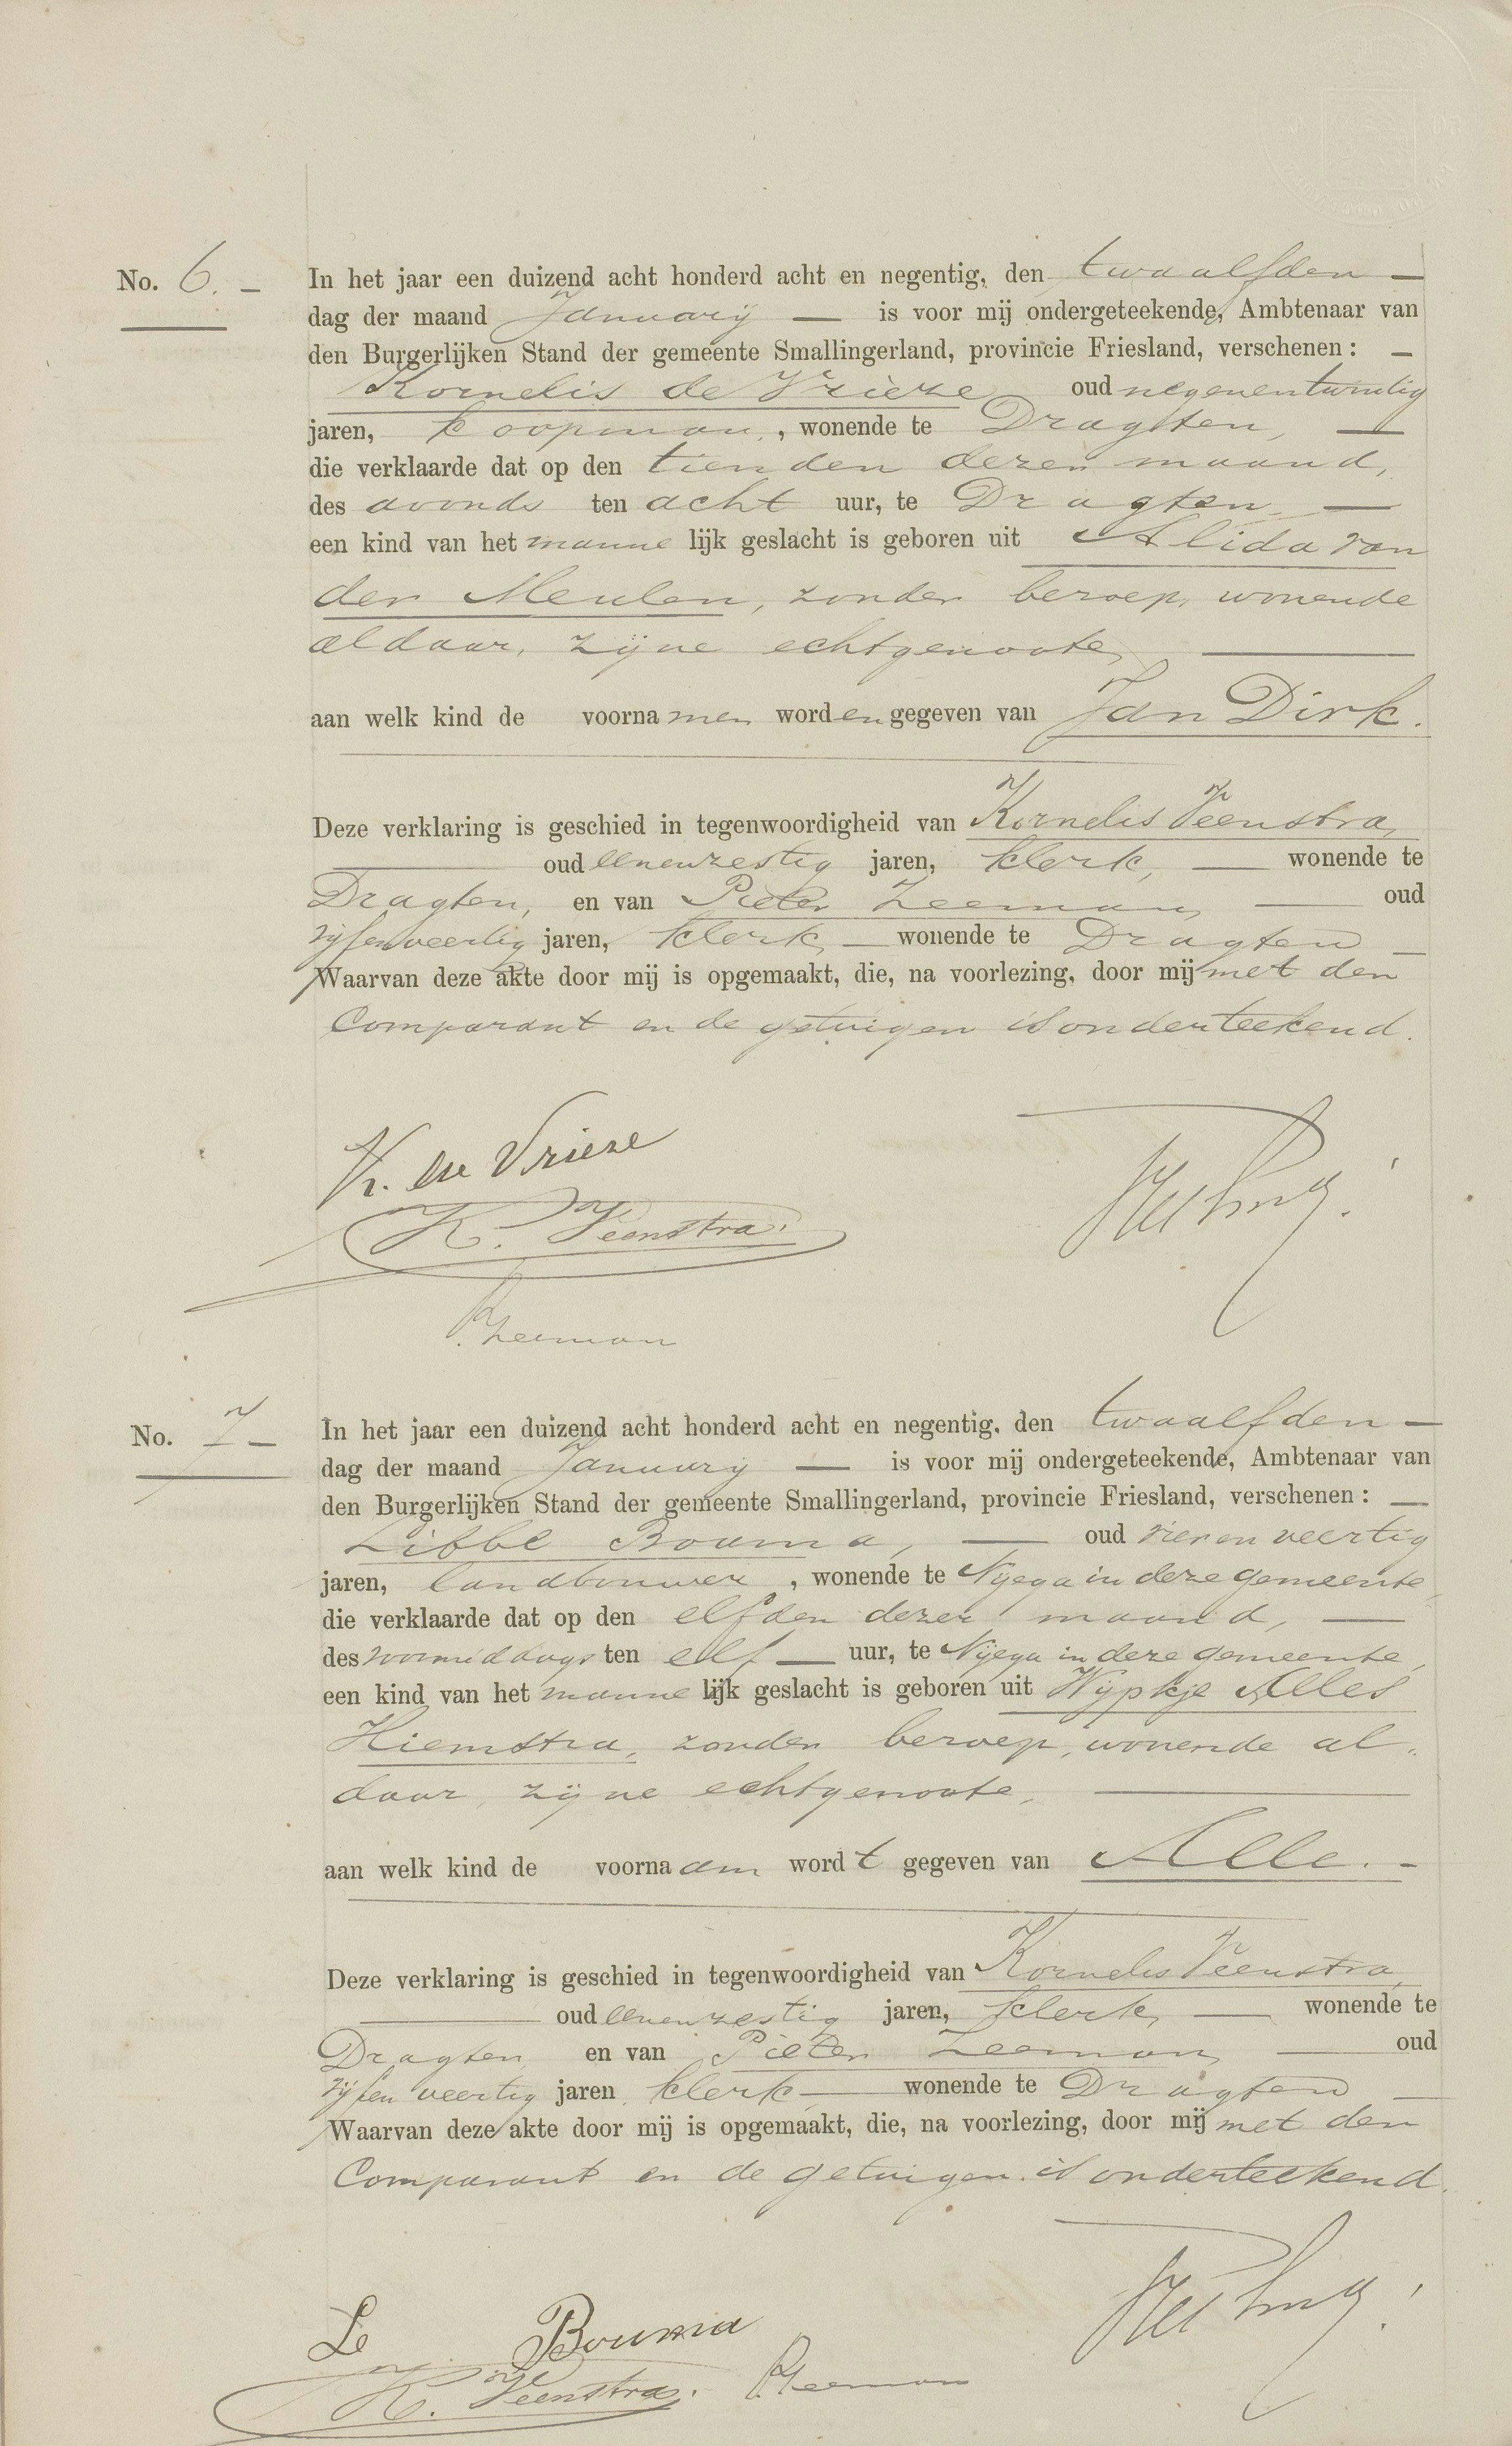 No. 6. — In het jaar een duizend acht honderd acht en negentig, den twaalfden —
dag der maand January — is voor mij ondergeteekende, Ambtenaar van
den Burgerlijken Stand der gemeente Smallingerland, provincie Friesland, verschenen: —
Kornelis de Vrieze oud negenentwintig
jaren, koopman, , wonende te Dragten, —
die verklaarde dat op den tienden dezer maand,
des avonds ten acht uur, te Dragten —
een kind van het manne lijk geslacht is geboren uit Alida van
der Meulen, zonder beroep, wonende
aldaar, zijne echtgenoote, —
aan welk kind de voorna men word en gegeven van Jan Dirk.
Deze verklaring is geschied in tegenwoordigheid van Kornelis Veenstra,
— oud eenenzestig jaren, klerk, — wonende te
Dragten, en van Pieter Zeeman, — oud
vijfenveertig jaren, klerk, — wonende te Dragten —
Waarvan deze akte door mij is opgemaakt, die, na voorlezing, door mij met den
Comparant en de getuigen is onderteekend.
K. de Vrieze
K. Veenstra.
P. Zeeman
No. 7 — In het jaar een duizend acht honderd acht en negentig, den twaalfden —
dag der maand January — is voor mij ondergeteekende, Ambtenaar van
den Burgerlijken Stand der gemeente Smallingerland, provincie Friesland, verschenen: —
Libbe Bouma, — oud vierenveertig
jaren, landbouwer , wonende te Nijega in deze gemeente,
die verklaarde dat op den elfden dezer maand, —
des voormiddags ten elf — uur, te Nijega in deze gemeente,
een kind van het manne lijk geslacht is geboren uit Wypkje Alles
Hiemstra, zonder beroep, wonende al-
daar, zijne echtgenoote, —
aan welk kind de voorna am word t gegeven van Alle. —
Deze verklaring is geschied in tegenwoordigheid van Kornelis Veenstra,
— oud eenenzestig jaren, klerk, — wonende te
Dragten, en van Pieter Zeeman, — oud
vijfenveertig jaren, klerk — wonende te Dragten —
Waarvan deze akte door mij is opgemaakt, die, na voorlezing, door mij met den
Comparant en de getuigen is onderteekend.
Le Bouma
K. Veenstra. P. Zeeman